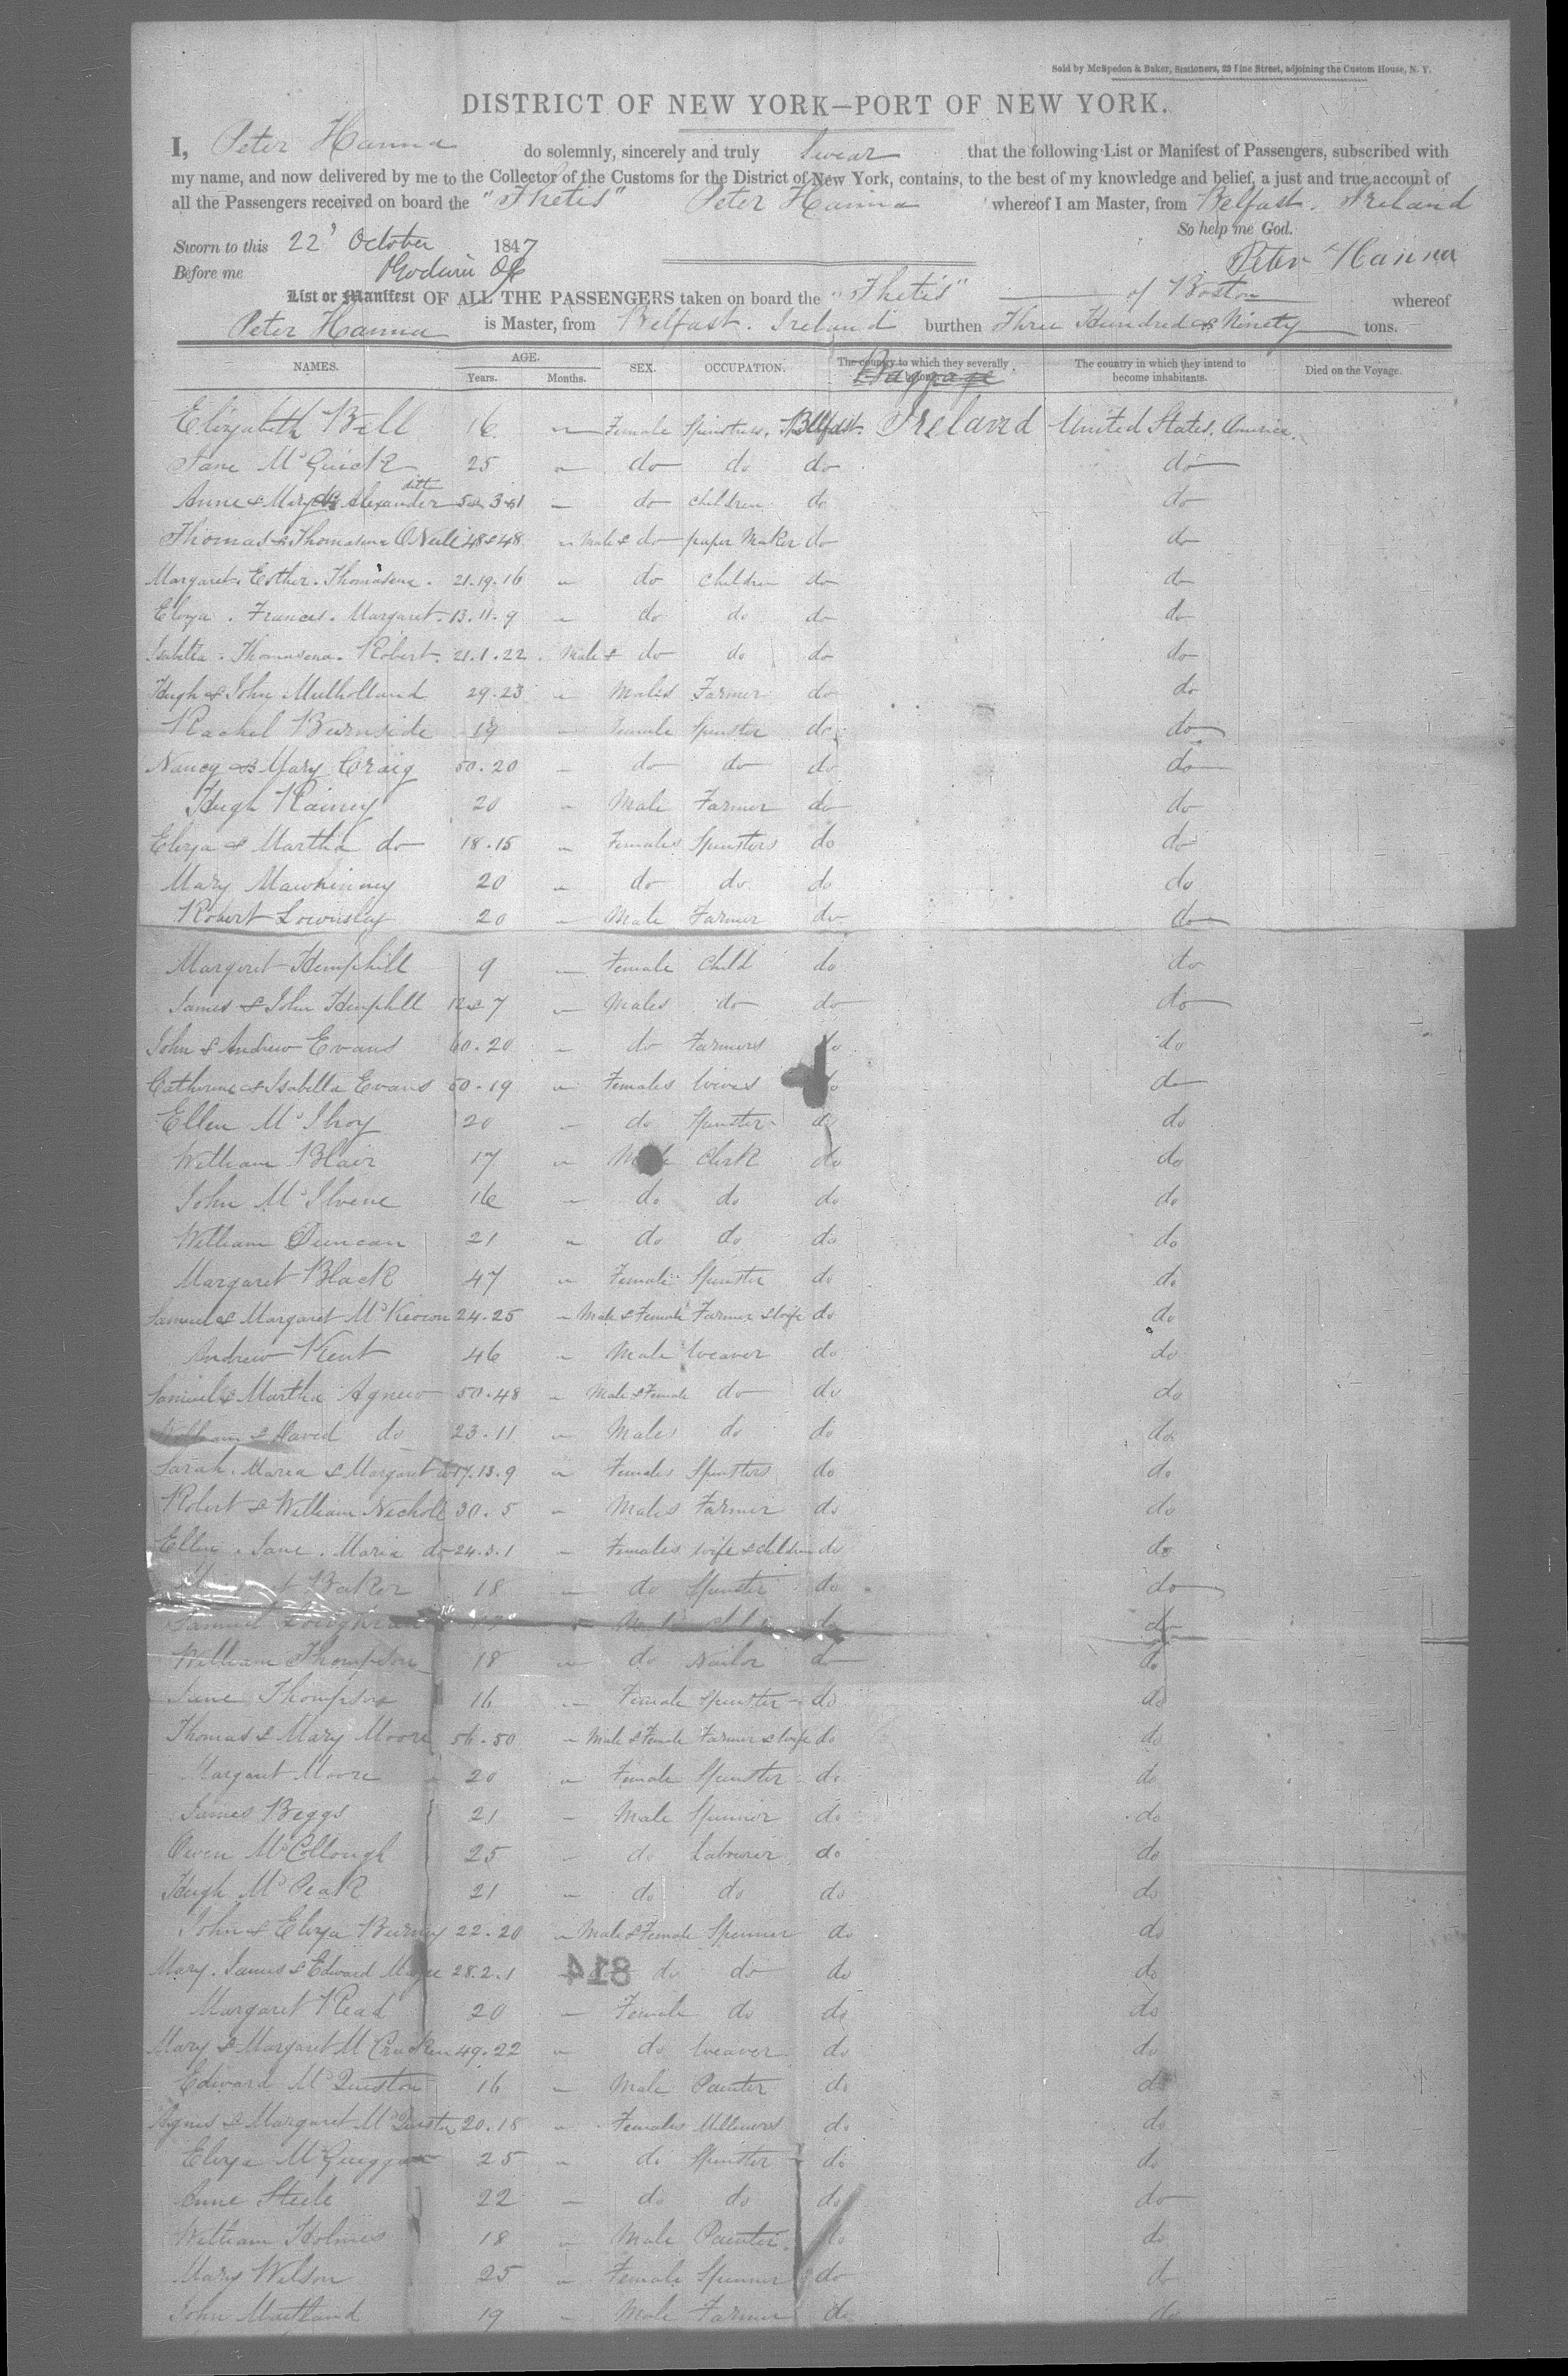 Sold by McSpedon & Baker, Stationers, 29 Pine Street, adjoining the Custom House, N. Y.
DISTRICT OF NEW YORK—PORT OF NEW YORK.
I, Peter Hanna do solemnly, sincerely and truly Swear that the following List or Manifest of Passengers, subscribed with
my name, and now delivered by me to the Collector of the Customs for the District of New York, contains, to the best of my knowledge and belief, a just and true account of
all the Passengers received on board the "Thetis" Peter Hanna whereof I am Master, from Belfast. Ireland
So help me God.
Sworn to this 22 October 1847
Peter Hanna
Before me
List or Manifest OF ALL THE PASSENGERS taken on board the "Thetis" of Boston whereof
Peter Hanna is Master, from Belfast. Ireland burthen Three Hundred & Ninety tons.
NAMES. AGE. Years. Months. SEX. OCCUPATION. The country to which they severally The country in which they intend to become inhabitants. Died on the Voyage.
Elizabeth Bell 16 Female Spinstress. Belfast. Ireland United States. America.
Jane McQuick 25 do do do do
Anne & Mary Alexander 3 & 1 do children do do
Thomas & Thomasena ONeill 48 & 48 Male & do paper Maker do do
Margaret. Esther. Thomasena. 21.19.16 do Children do do
Eliza. Frances. Margaret. 13.11.9 do do do do
Isabella. Thomasena. Robert. 21.1.22. Male & do do do do
Hugh & John Mulholland 29.23 Males Farmer do do
Rachel Burnside 19 Female Spinster do do
Nancy & Mary Craig 50.20 do do do do
Hugh Rainey 20 Male Farmer do do
Eliza & Martha do 18.15 Females Spinsters do do
Mary Mawhinney 20 do do do do
Robert Lownsley 20 Male Farmer do do
Margaret Hemphill 9 Female Child do do
James & John Hemphill 12 & 7 Males do do do
John & Andrew Evans 60.20 do Farmers do do
Catherine & Isabella Evans 50.19 Females Wives do do
Ellen McIlroy 20 do Spinster do do
William Blair 17 Male Clerk do do
John McIlvene 16 do do do do
William Duncan 21 do do do do
Margaret Black 47 Female Spinster do do
Samuel & Margaret McKeown 24.25 Male & Female Farmer & wife do do
Andrew Kent 46 Male Weaver do do
Samuel & Martha Agnew 50.48 Male & Female do do do
William & David do 23.11 Males do do do
Sarah. Maria & Margaret do 17.13.9 Females Spinsters do do
Robert & William Nicholl 30.5 Males Farmer do do
Ellen. Jane. Maria do 24.3.1 Females wife & children do do
Baker 18 do Spinster do do
Samuel do do
William Thompson 18 do Nailor do do
Jane Thompson 16 Female Spinster do do
Thomas & Mary Moore 56.50 Male & Female Farmer & wife do do
Margaret Moore 20 Female Spinster do do
James Beggs 21 Male Spinner do do
Owen McCollough 25 do Labourer do do
Hugh McPeak 21 do do do do
John & Eliza Burney 22.20 Male & Female Spinner do do
Mary. James & Edward Magee 28.2.1 do do do do
814
Margaret Read 20 Female do do do
Mary & Margaret McCracken 49.22 do Weaver do do
Edward McQuiston 16 Male Painter do do
Agnes & Margaret McQuiston 20.18 Females Milliners do do
Eliza McGuiggan 25 do Spinster do do
Anne Steele 22 do do do do
William Holmes 18 Male Painter do do
Mary Wilson 25 Female Spinner do do
John Maitland 19 Male Farmer do do